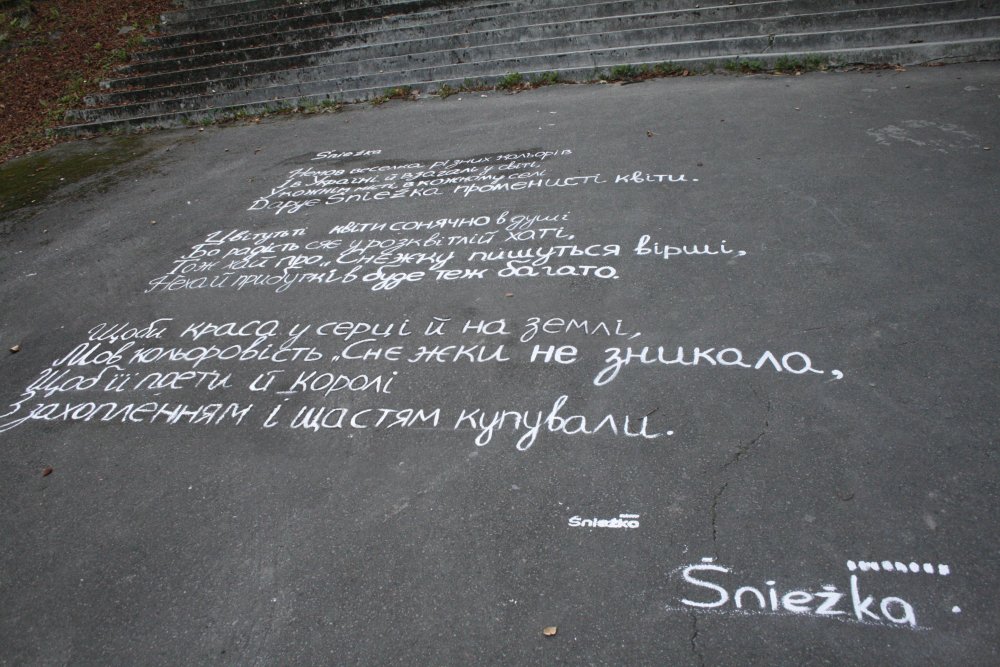 Śnieżka
Немов веселка різних кольорів
У в Україні й взагалі у світі,
У кожнім місті, в кожному селі
Дарує Śnieżka променисті квіти.
Цвітуть ті квіти сонячно в душі
Бо радість сяє у розквітлій хаті,
Тож хай про „Снєжку пишуться вірші,
Нехай прибутків буде теж багато.
Щоби краса у серці й на землі,
Мов кольоровість „Снєжки не зникала,
Щоб її поети й королі
З захопленням і щастям купували.
Śnieżka
Śnieżka